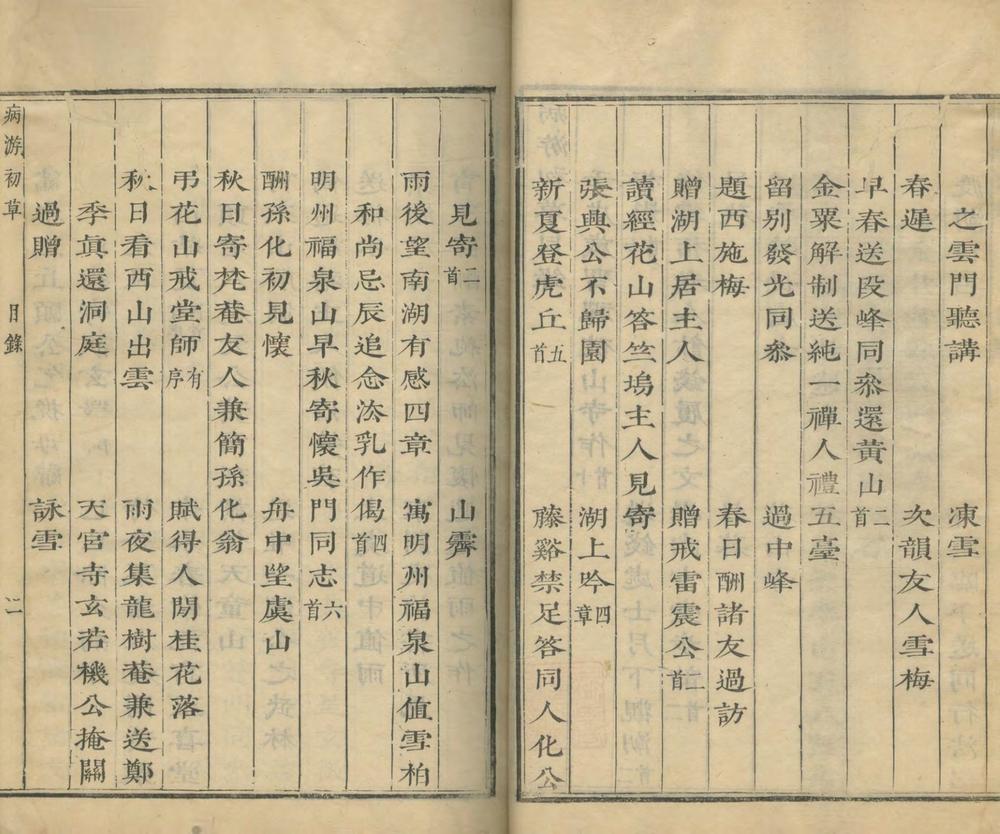 之雲門聽講　凍雪
春遲　次韻友人雪梅
早春送段峰同叅還黃山二首
金粟解制送純一禪人禮五臺
留別發光同叅　過中峰
題西施梅　春日酬諸友過訪
贈湖上居主人　贈戒雷震公二首
讀經花山答竺塢主人見寄
張興公不歸園　湖上吟四章
新夏登虎丘五首　藤谿禁足答同人化公
見寄二首　山霽
雨後望南湖有感四章　寓明州福泉山值雪柏
和尚忌辰追念法乳作偈四首
明州福泉山早秋寄懷吳門同志六首
酬孫化初見懷　舟中望虞山
秋日寄梵菴友人兼簡孫化翁
弔花山戒堂師有序　賦得人閒桂花落
秋日看西山出雲　雨夜集龍樹菴兼送鄭
季眞還洞庭　天宮寺玄若機公掩關
過贈　詠雪
病游初草　目錄　二